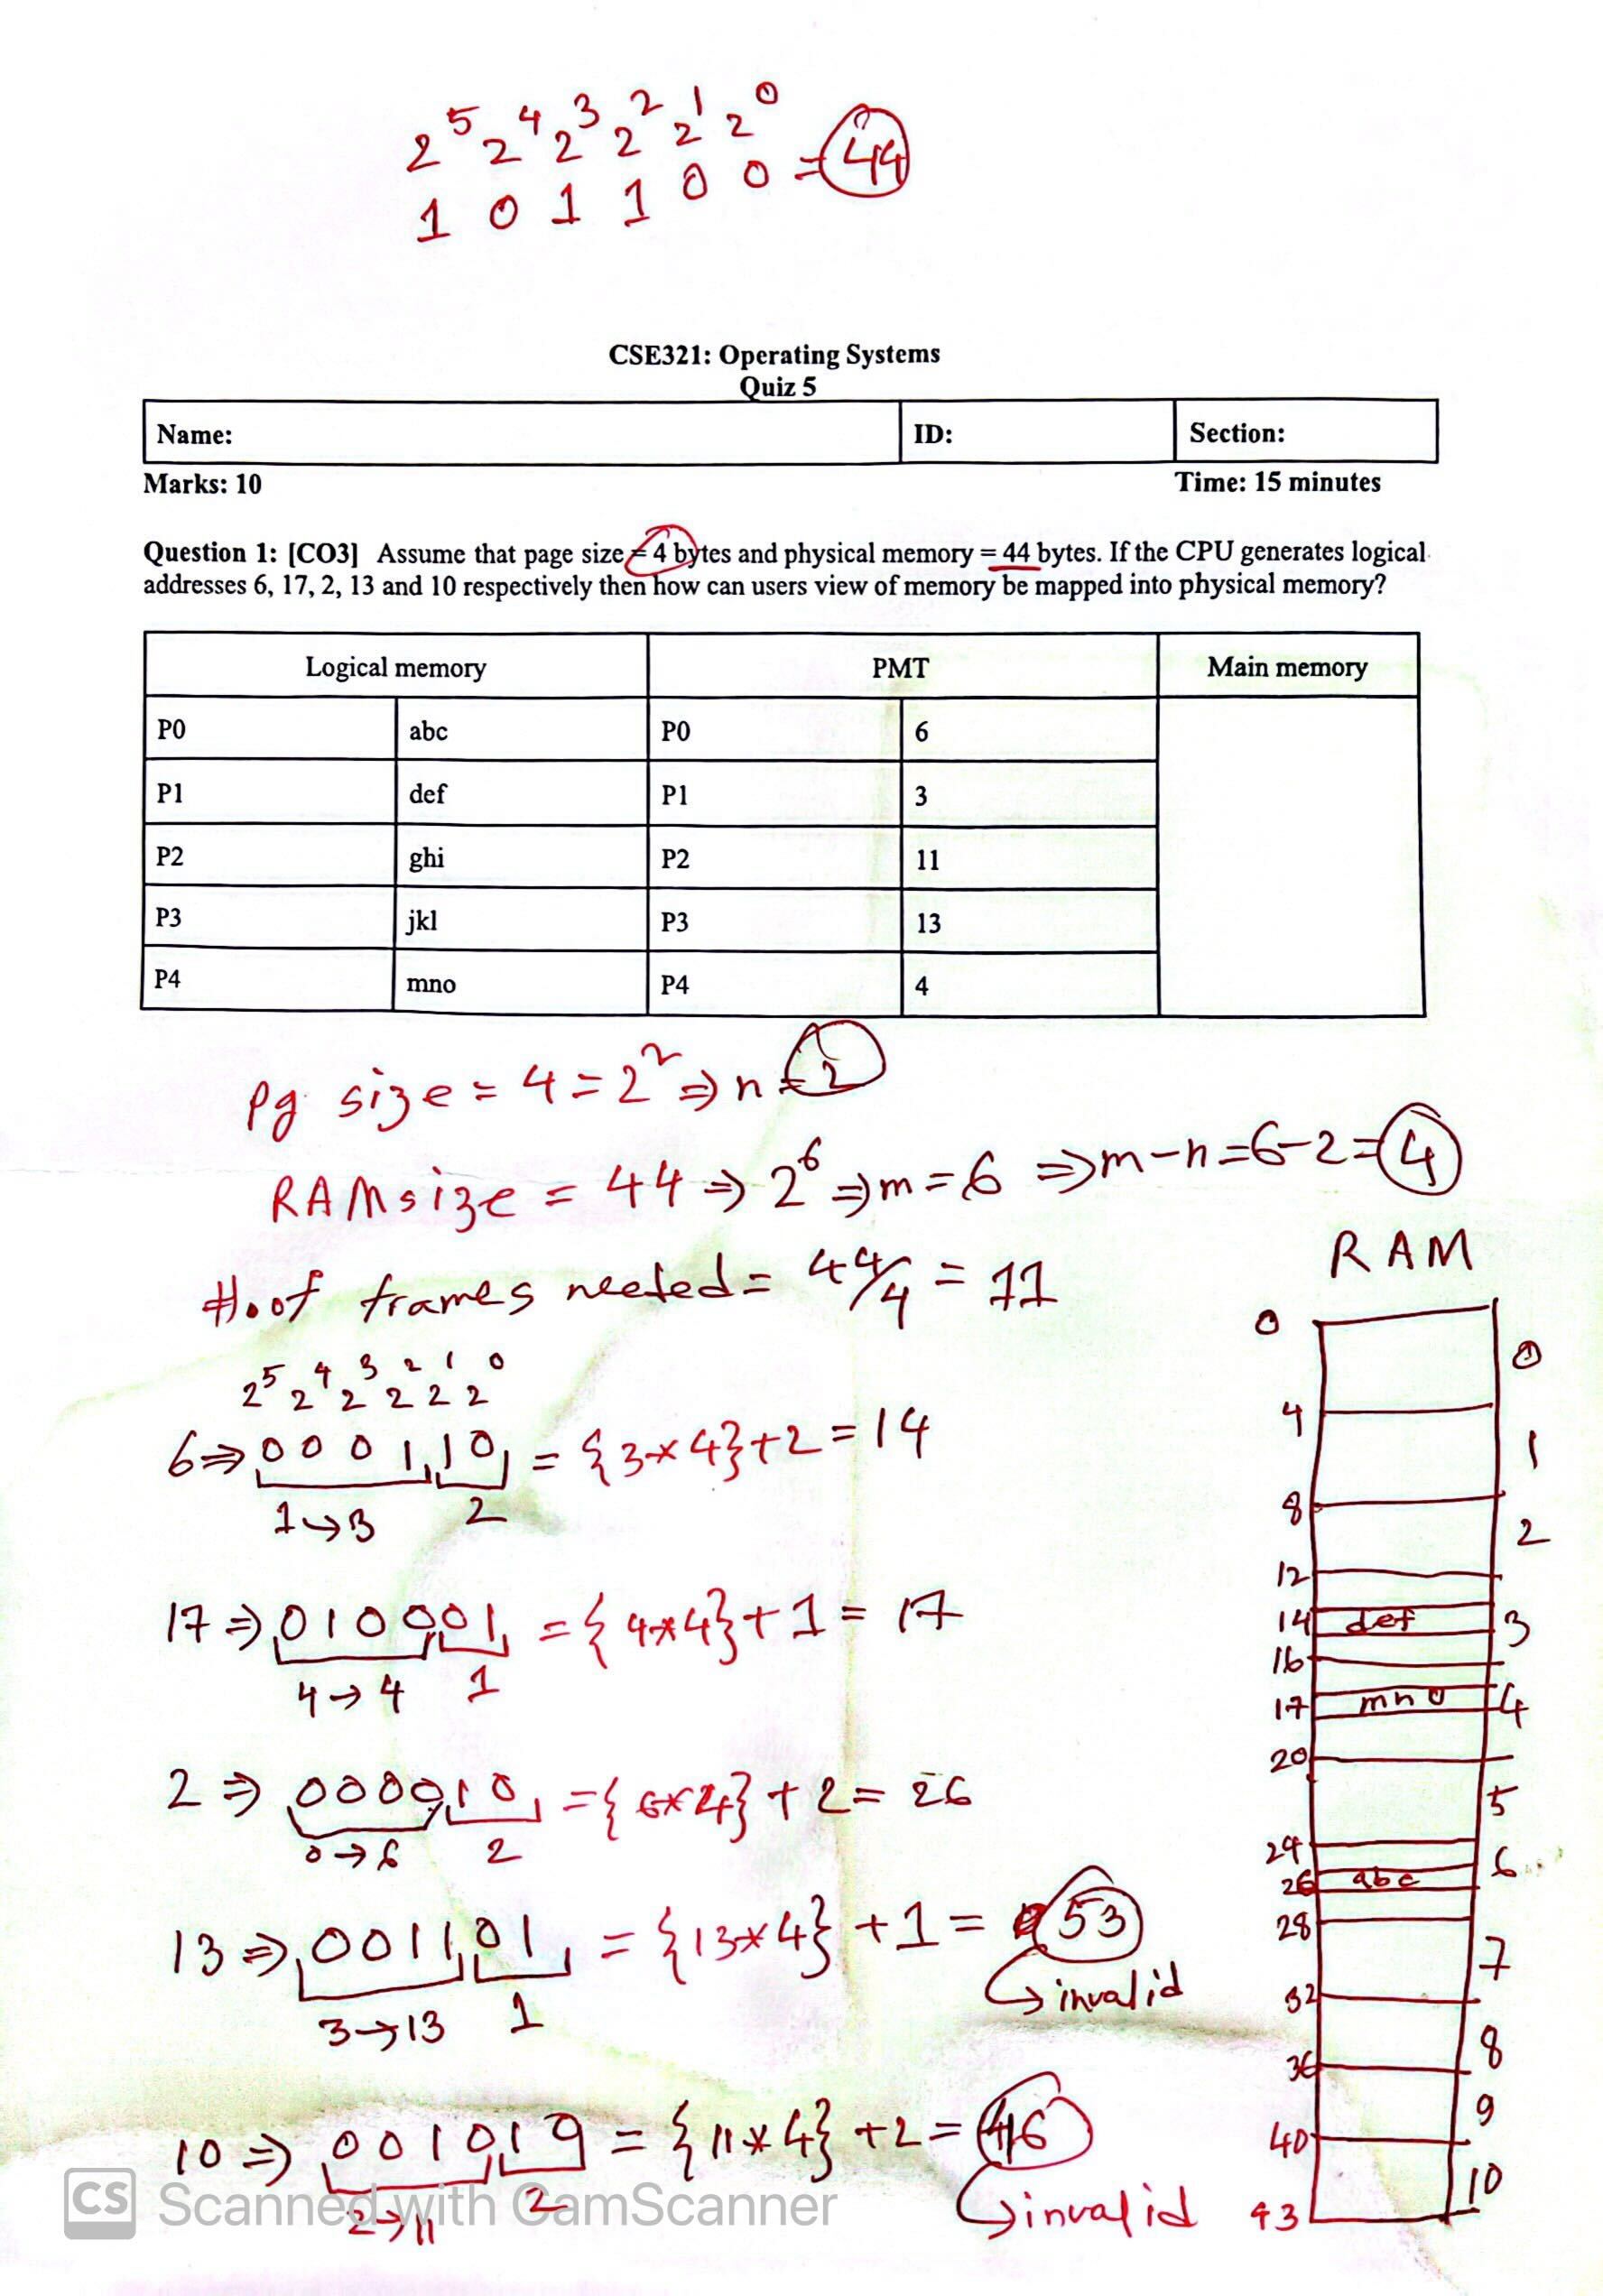 2^5 2^4 2^3 2^2 2^1 2^0
1 0 1 1 0 0 = 44
CSE321: Operating Systems
Quiz 5
Name: ID: Section:
Marks: 10 Time: 15 minutes
Question 1: [CO3] Assume that page size = 4 bytes and physical memory = 44 bytes. If the CPU generates logical
addresses 6, 17, 2, 13 and 10 respectively then how can users view of memory be mapped into physical memory?
Logical memory PMT Main memory
P0 abc P0 6
P1 def P1 3
P2 ghi P2 11
P3 jkl P3 13
P4 mno P4 4
pg size = 4 = 2^2 ⇒ n = 2
RAM size = 44 ⇒ 2^6 ⇒ m = 6 ⇒ m-n = 6-2 = 4
#. of frames needed = 44/4 = 11
2^5 2^4 2^3 2^2 2^1 2^0
6 ⇒ 000110 = {3*4}+2 = 14
1→3 2
17 ⇒ 010001 = {4*4}+1 = 17
4→4 1
2 ⇒ 000010 = {6*4}+2 = 26
0→6 2
13 ⇒ 001101 = {13*4}+1 = 53
invalid
3→13 1
10 ⇒ 001010 = {11*4}+2 = 46
invalid
2→11 2
RAM
0
0
4
1
8
2
12
14 def 3
16
17 mno 4
20
5
24
6
26 abc
28
7
32
8
36
9
40
10
43
CS Scanned with CamScanner